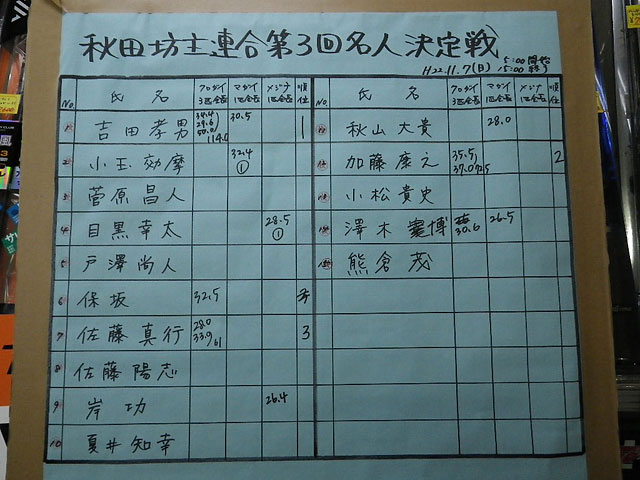 秋田坊主連合第3回名人決定戦
H22.11.7(日) 5:00開始
15:00終了
No. 氏名 クロダイ3匹全長 マダイ1匹全長 メジナ1匹全長 順位
1 吉田孝男 29.6 50.0 114.0 30.5 1
2 小玉効摩 32.4 ①
3 菅原昌人
4 目黒幸太 28.5 ①
5 戸澤尚人
6 保坂 32.5
7 佐藤真行 28.0 33.9 61 3
8 佐藤陽志
9 岸功 26.4
10 夏井知幸
No. 氏名 クロダイ3匹全長 マダイ1匹全長 メジナ1匹全長 順位
11 秋山大貴 28.0
12 加藤康之 35.5 37.0 2
13 小松貴史
14 澤木憲博 30.6 26.5
15 熊倉茂